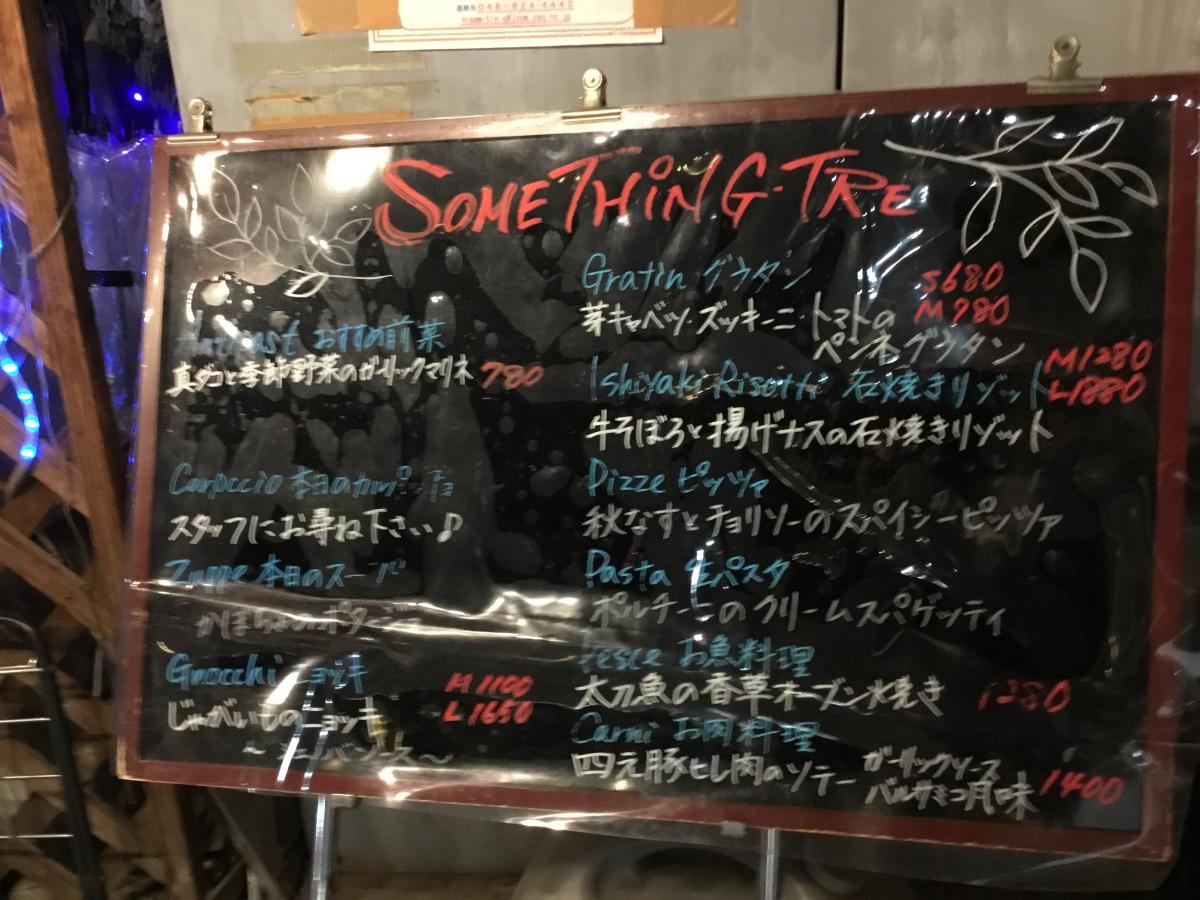 連絡先 048-824-4442
SOMETHING-TRE
おすすめ前菜
真ダコと季節野菜のガーリックマリネ 780
本日のカルパッチョ
スタッフにお尋ね下さい♪
Zuppe 本日のスープ
かぼちゃのポタージュ
Gnocchi ニョッキ M 1100
じゃがいものニョッキ L 1650
Gratin グラタン S680
芽キャベツ・ズッキーニ・トマトの M 780
ペンネグラタン
Ishiyaki 石焼きリゾット M1280 L1880
牛そぼろと揚げナスの石焼きリゾット
Pizze ピッツァ
秋なすとチョリソーのスパイシーピッツァ
Pasta 生パスタ
ポルチーニのクリームスパゲッティ
Pesce お魚料理
太刀魚の香草オーブン焼き 1280
Carni お肉料理
四元豚ヒレ肉のソテー ガーリックソース
バルサミコ風味 1400